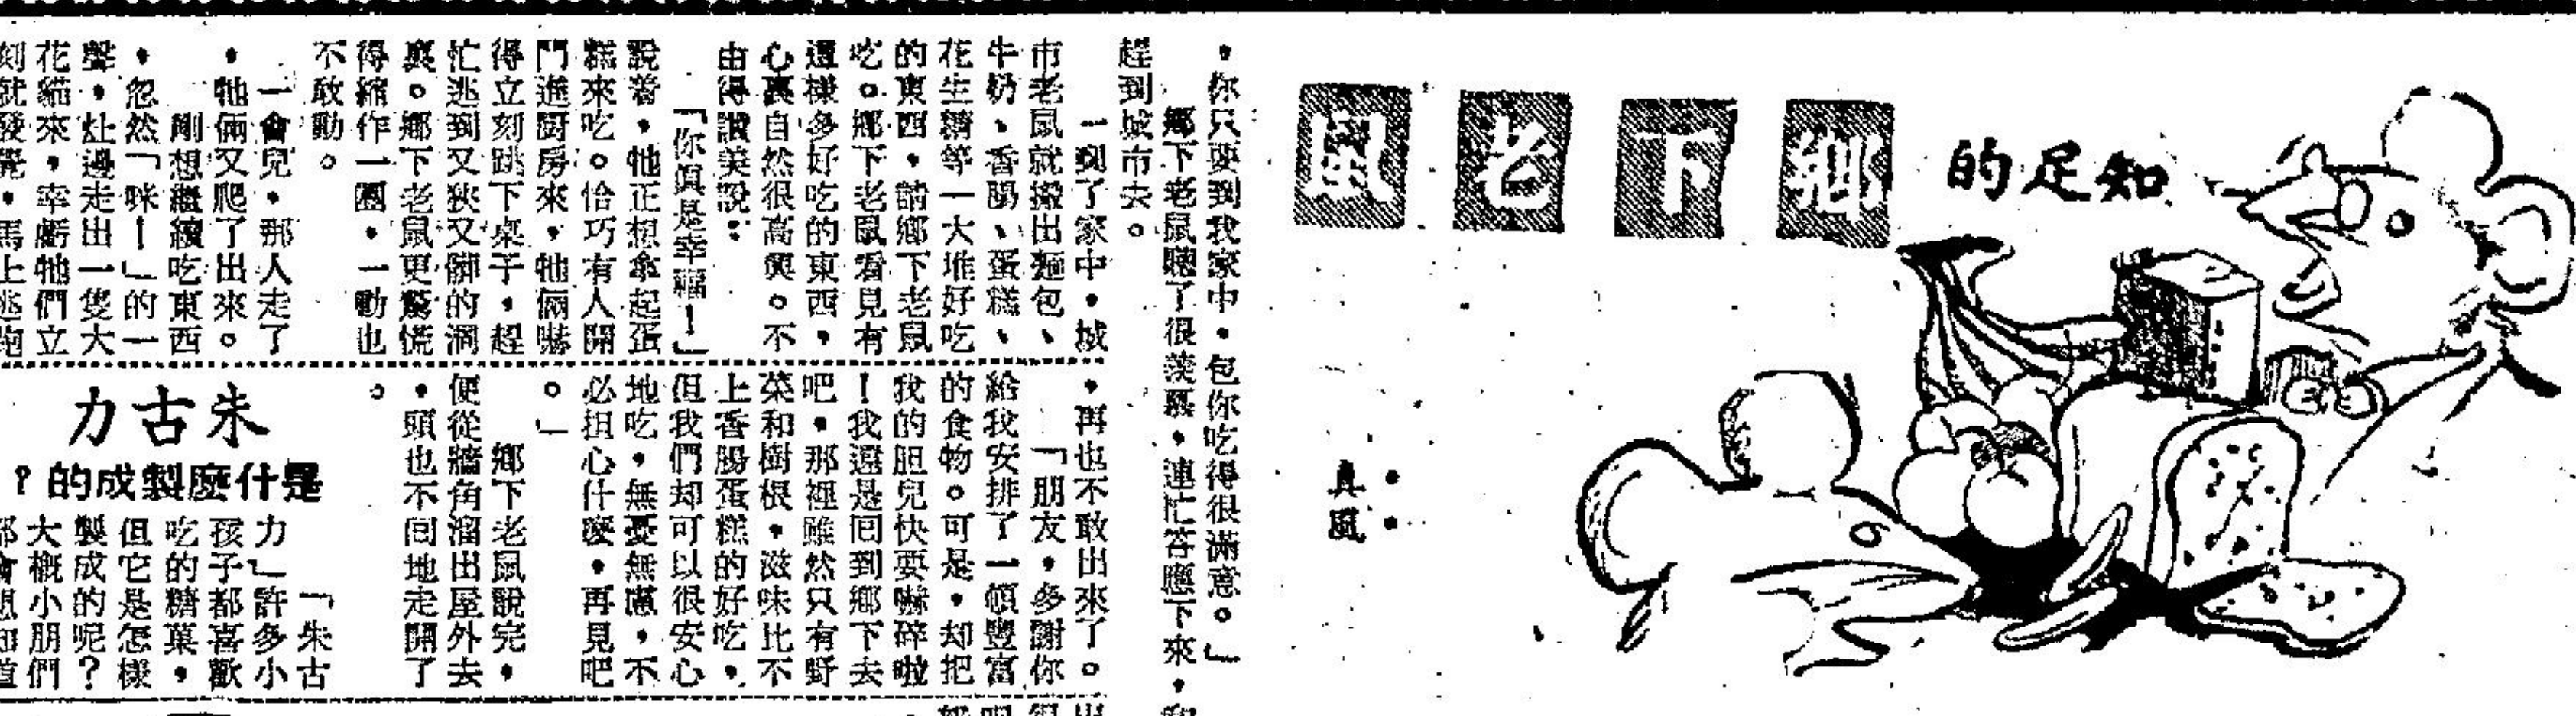 知足的
鄉下老鼠
真風：
，你只要到我家中，包你吃得很滿意。」
鄉下老鼠聽了很羨慕，連忙答應下來，和
趕到城市去。
一到了家中，城
市老鼠就搬出麵包、
牛奶、香腸、蛋糕、
花生糖等一大堆好吃
的東西，請鄉下老鼠
吃。鄉下老鼠看見有
這樣多好吃的東西，
心裏自然很高興。不
由得讚美說：
「你真是幸福！」
說着，牠正想拿起蛋
糕來吃。恰巧有人開
門進廚房來，牠倆嚇
得立刻跳下桌子，趕
忙逃到又狹又髒的洞
裏。鄉下老鼠更驚慌
得縮作一團，一動也
不敢動。
一會兒，那人走了
，牠倆又爬了出來。
剛想繼續吃東西
，忽然「咪—」的一
聲，灶邊走出一隻大
花貓來，幸虧牠們立
刻就發覺，馬上逃跑
，再也不敢出來了。
「朋友，多謝你
給我安排了一頓豐富
的食物。可是，却把
我的胆兒快要嚇碎啦
！我還是回到鄉下去
吧，那裡雖然只有野
菜和樹根，滋味比不
上香腸蛋糕的好吃，
但我們却可以很安心
地吃，無憂無慮，不
必担心什麼，再見吧
。」
鄉下老鼠說完，
便從牆角溜出屋外去
，頭也不回地走開了
。
朱古力
是什麼製成的？
「朱古
力」許多小
孩子都喜歡
吃的糖菓，
但它是怎樣
製成的呢？
大概小朋們
都會想知道